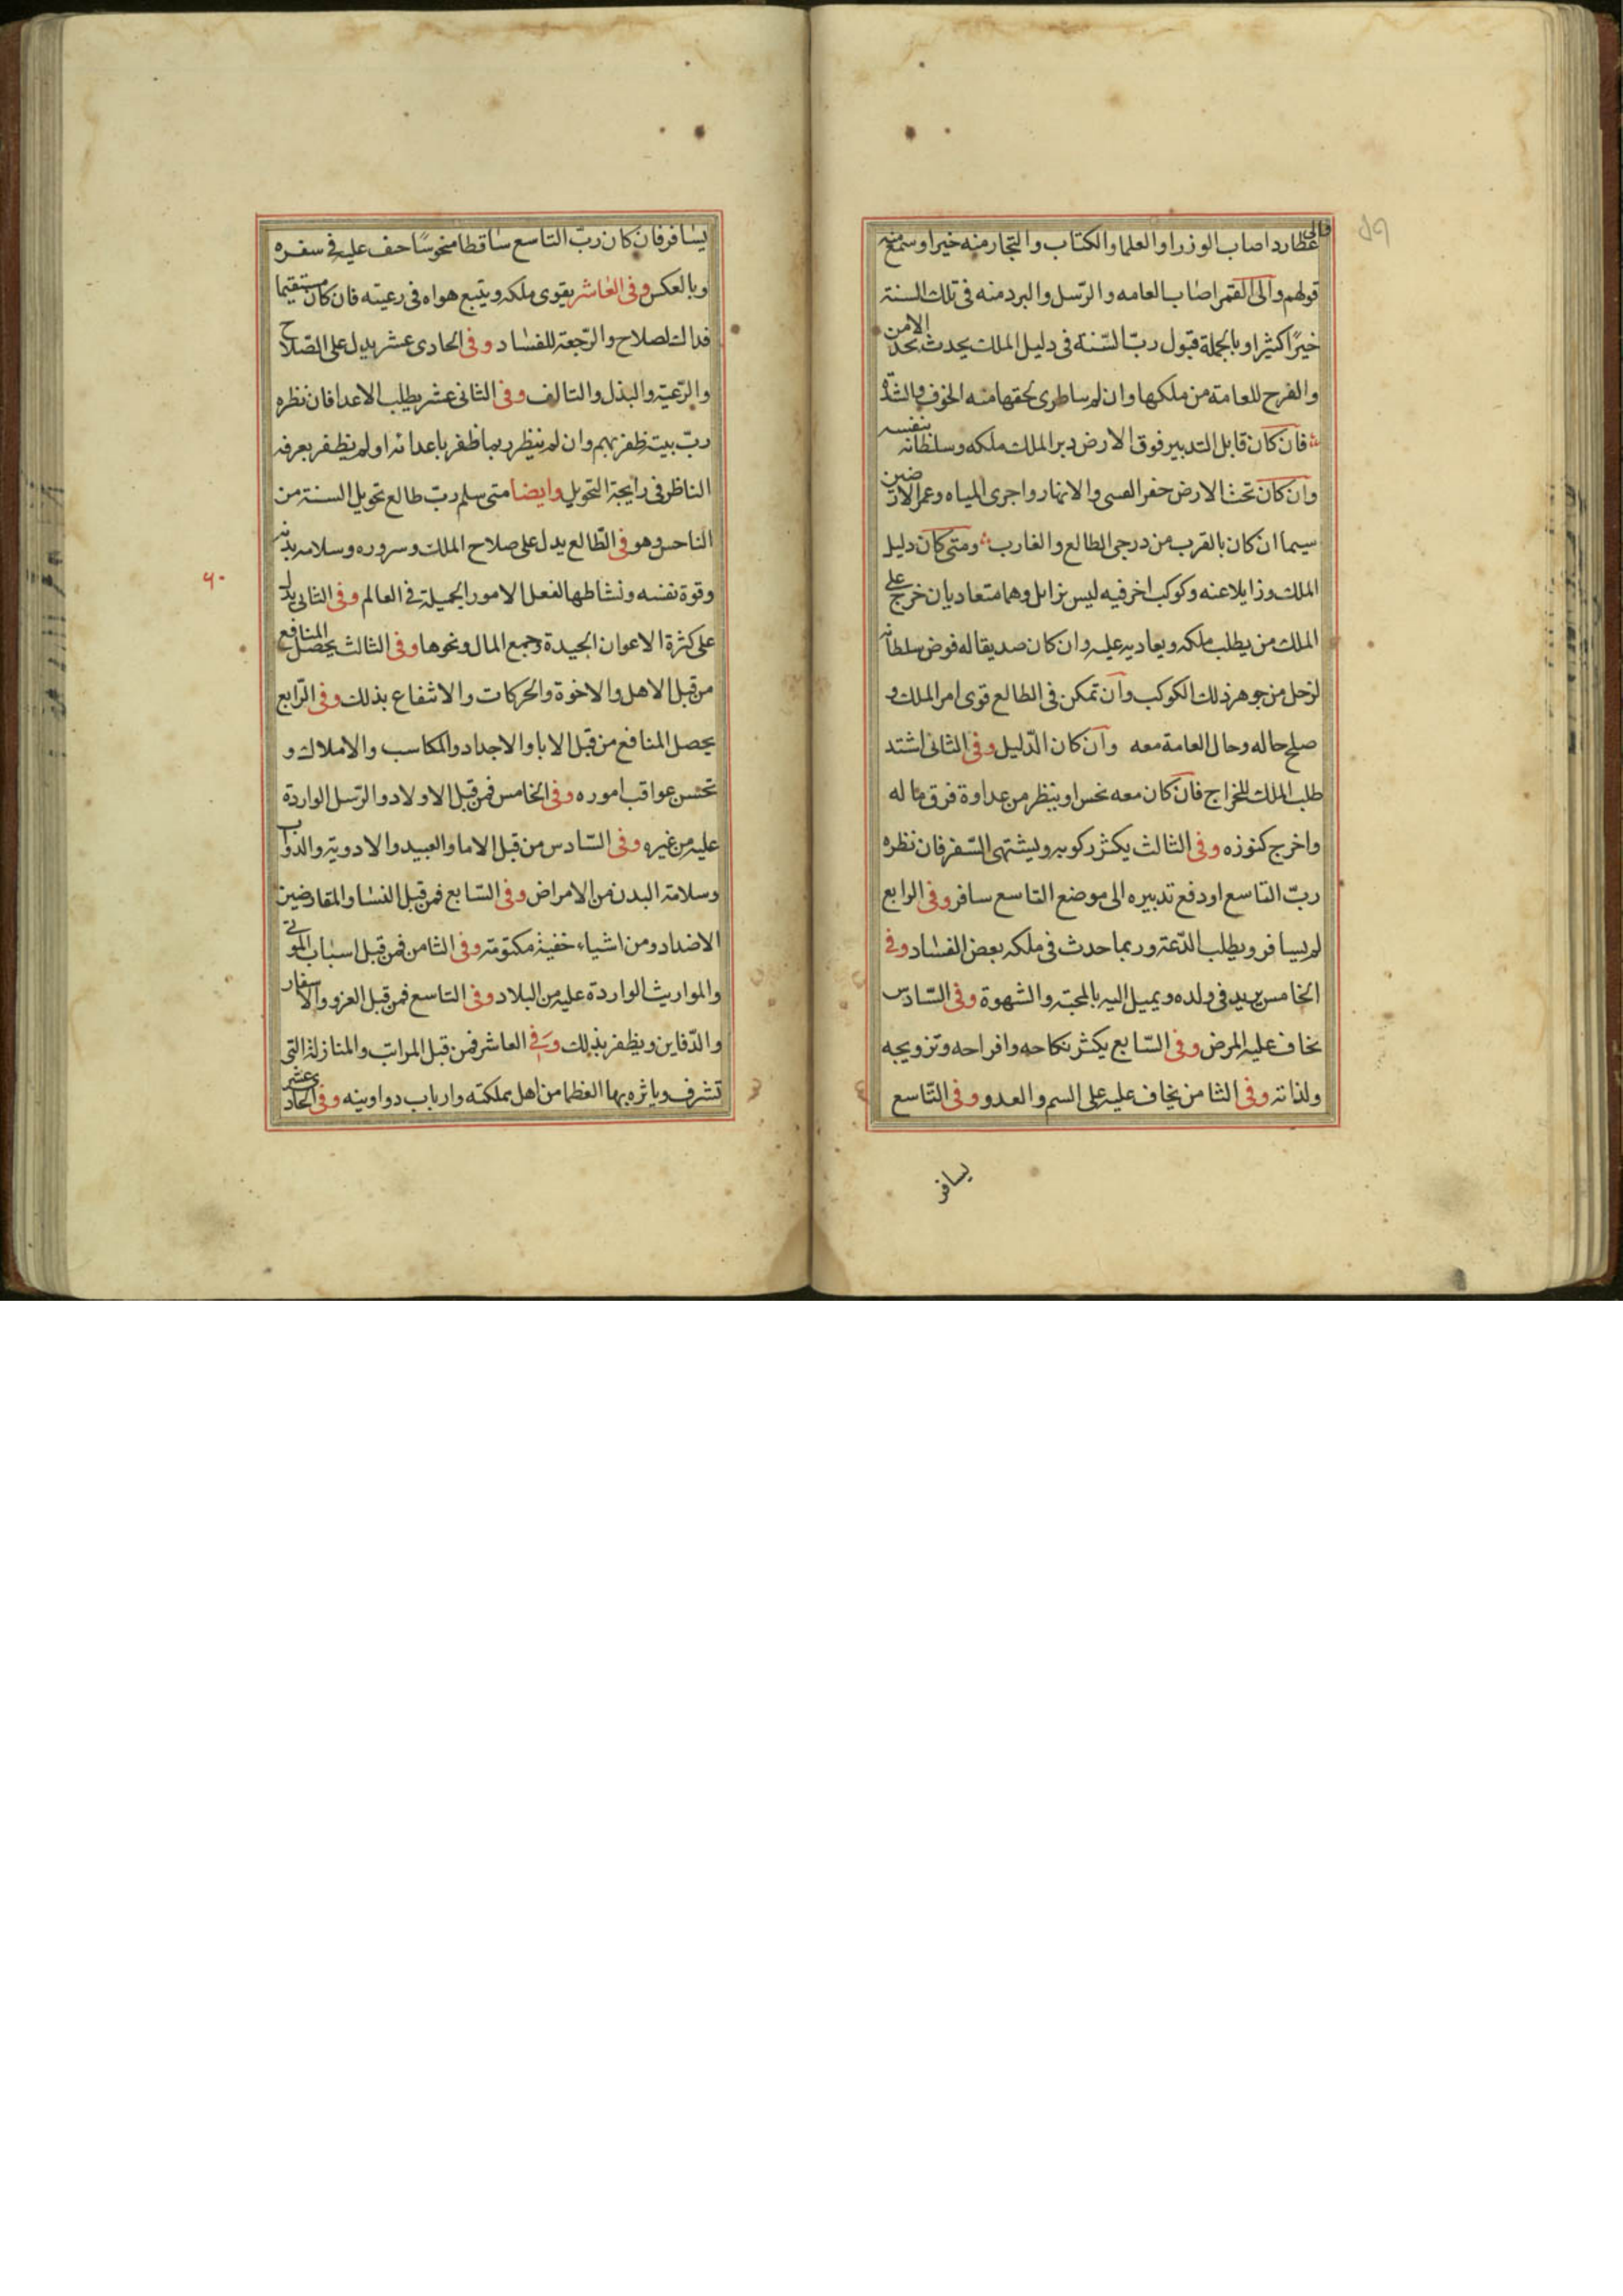 والى
عطارد اصاب الوزرا والعلما والكتاب والتجار منه خيرا وسمع منهم
قولهم وآلى القمر اصاب العامه والرّسل والبرد منه فى تلك السنة
خيرًا كثيرا وبالجملة قبول ربّ السّنة فى دليل الملك يحدث بحد الامن
والفرح للعامة من ملكها وان لم ساطرى لحقها منه الخوف والشدّة
فان كان قابل التدبير فوق الارض دبر الملك ملكه وسلطانه بنفسه
وآن كان تحت الارض حفر القسى والانهار واجرى المياه وعمر الارضين
سيما ان كان بالقرب من درجى الطالع والغارب ومتى كان دليل
الملك وزايلا عنه وكوكب اخر فيه ليس بزايل وهما متعاديان خرج على
الملك من يطلب ملكه ويعاديه عليه وان كان صديقا له فوض سلطانه
لرجل من جوهر ذلك الكوكب وآن تمكن فى الطالع قوى امر الملك و
صلح حاله وحال العامة معه وآن كان الدّليل وفى الثانى اشتد
طلب الملك للخراج فان كان معه نحس او ينظر من عداوة فرق ماله
واخرج كنوزه وفى الثالث يكثر ركوبه ويشتهى السّفر فان نظره
ربّ التاسع او دفع تدبيره الى موضع التاسع سافر وفى الرابع
لم يسافر ويطلب الدّعة وربما حدث فى ملكه بعض الفساد وفى
الخامس يزيد فى ولده ويميل اليه بالمحبّة والشهوة وفى السّادس
نخاف عليه المرض وفى السّابع يكثر نكاحه وافراحه وتزويجه
ولذاته وفى الثامن يخاف عليه على السم والعدو وفى التّاسع
يسافر
يسافر فان كان ربّ التاسع ساقطا منحوسًا حف عليه فى سفره
وبالعكس وفى العاشر يقوى ملكه ويتبع هواه فى رعيته فان كان مستقيما
فدالت لصلاح والرّجعة للفساد وفى الحادى عشر يدل على الصّلاح
والرّعية والبذل والتالف وفى الثانى عشر يطلب الاعدا فان نظره
ربّ بيته ظفر بهم وان لم ينظر ربما ظفر باعدائه او لم يظفر يعرفه
الناظر فى رايجة التحويل وايضا متى سلم ربّ طالع تحويل السنة من
الناحس وهو فى الطّالع يدل على صلاح الملك وسروره وسلامه بدنه
وقوة نفسه ونشاطها لفعل الامور الجميلة فى العالم وفى الثانى يدل
على كثرة الاعوان الجيدة وجمع المال ونحوها وفى الثالث يحصل المنافع
من قبل الاهل والاخوة والحركات والانتفاع بذلك وفى الرّابع
يحصل المنافع من قبل الابا والاجداد والمكاسب والاملاك و
تحسن عواقب اموره وفى الخامس فمن قبل الاولاد والرّسل الواردة
عليه من غيره وفى السّادس من قبل الاما والعبيد والادوية والدّواب
وسلامة البدن من الامراض وفى السّابع فمن قبل النسا والمقارضين
الاضداد ومن اشياء خفية مكتومة وفى الثامن فمن قبل اسباب الموتى
والمواريث الواردة عليه من البلاد وفى التاسع فمن قبل الغزو والاسفار
والدّفاين ويظفر بذلك وفى العاشر فمن قبل المراتب والمنازلة التى
تشرف وياثره بها العظما من اهل مملكته وارباب دواوينه وفى الحادى عشر
٦٠